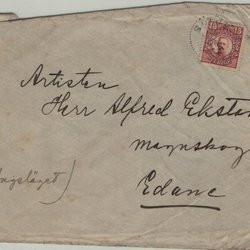 Artisten
Herr Alfred Ekstam
Magnskog
(Ängsläget)
Edane